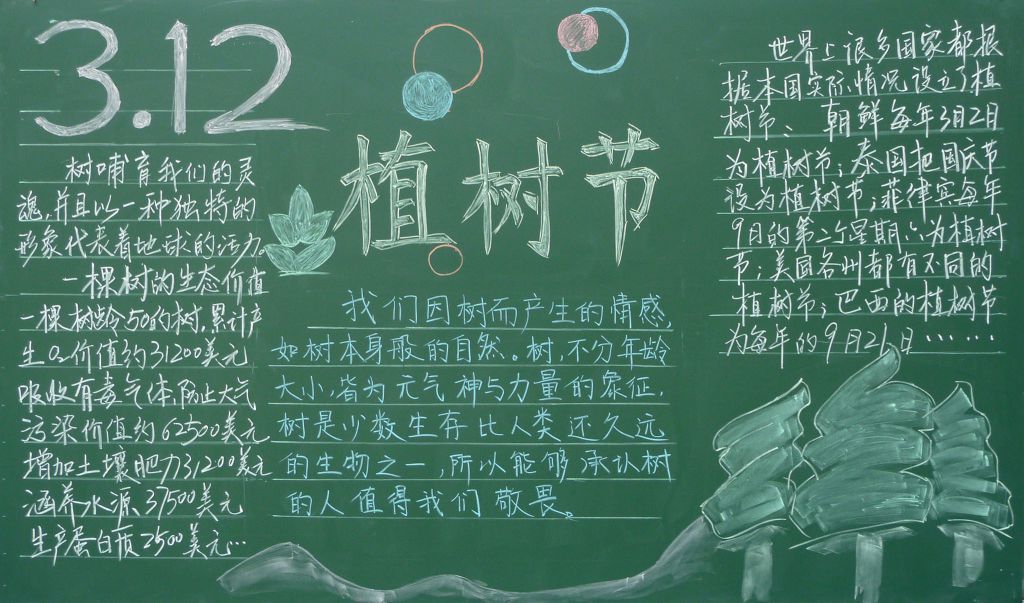 3.12
植树节
树哺育我们的灵
魂,并且以一种独特的
形象代表着地球的活力。
一棵树的生态价值
一棵树龄50的树,累计产
生O₂价值约31200美元
吸收有毒气体,防止大气
污染价值约62500美元
增加土壤肥力31200美元
涵养水源37500美元
生产蛋白质2500美元…
我们因树而产生的情感,
如树本身般的自然。树,不分年龄
大小,皆为元气神与力量的象征,
树是少数生存比人类还久远
的生物之一,所以能够承认树
的人值得我们敬畏。
世界上很多国家都根
据本国实际情况设立了植
树节、朝鲜每年3月2日
为植树节;泰国把国庆节
设为植树节;菲律宾每年
9月的第二个星期六为植树
节;美国各州都有不同的
植树节;巴西的植树节
为每年的9月21日……